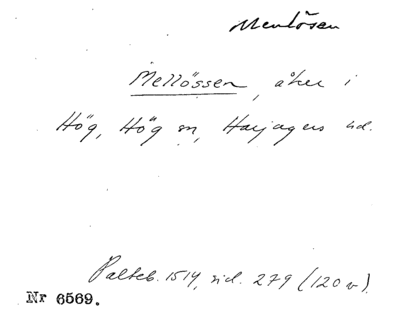 Menlösen
Mellössen, åker i
Hög, Hög sn, Harjagers hd.
Palteb. 1514, sid. 279 (120 v).
Nr 6569.